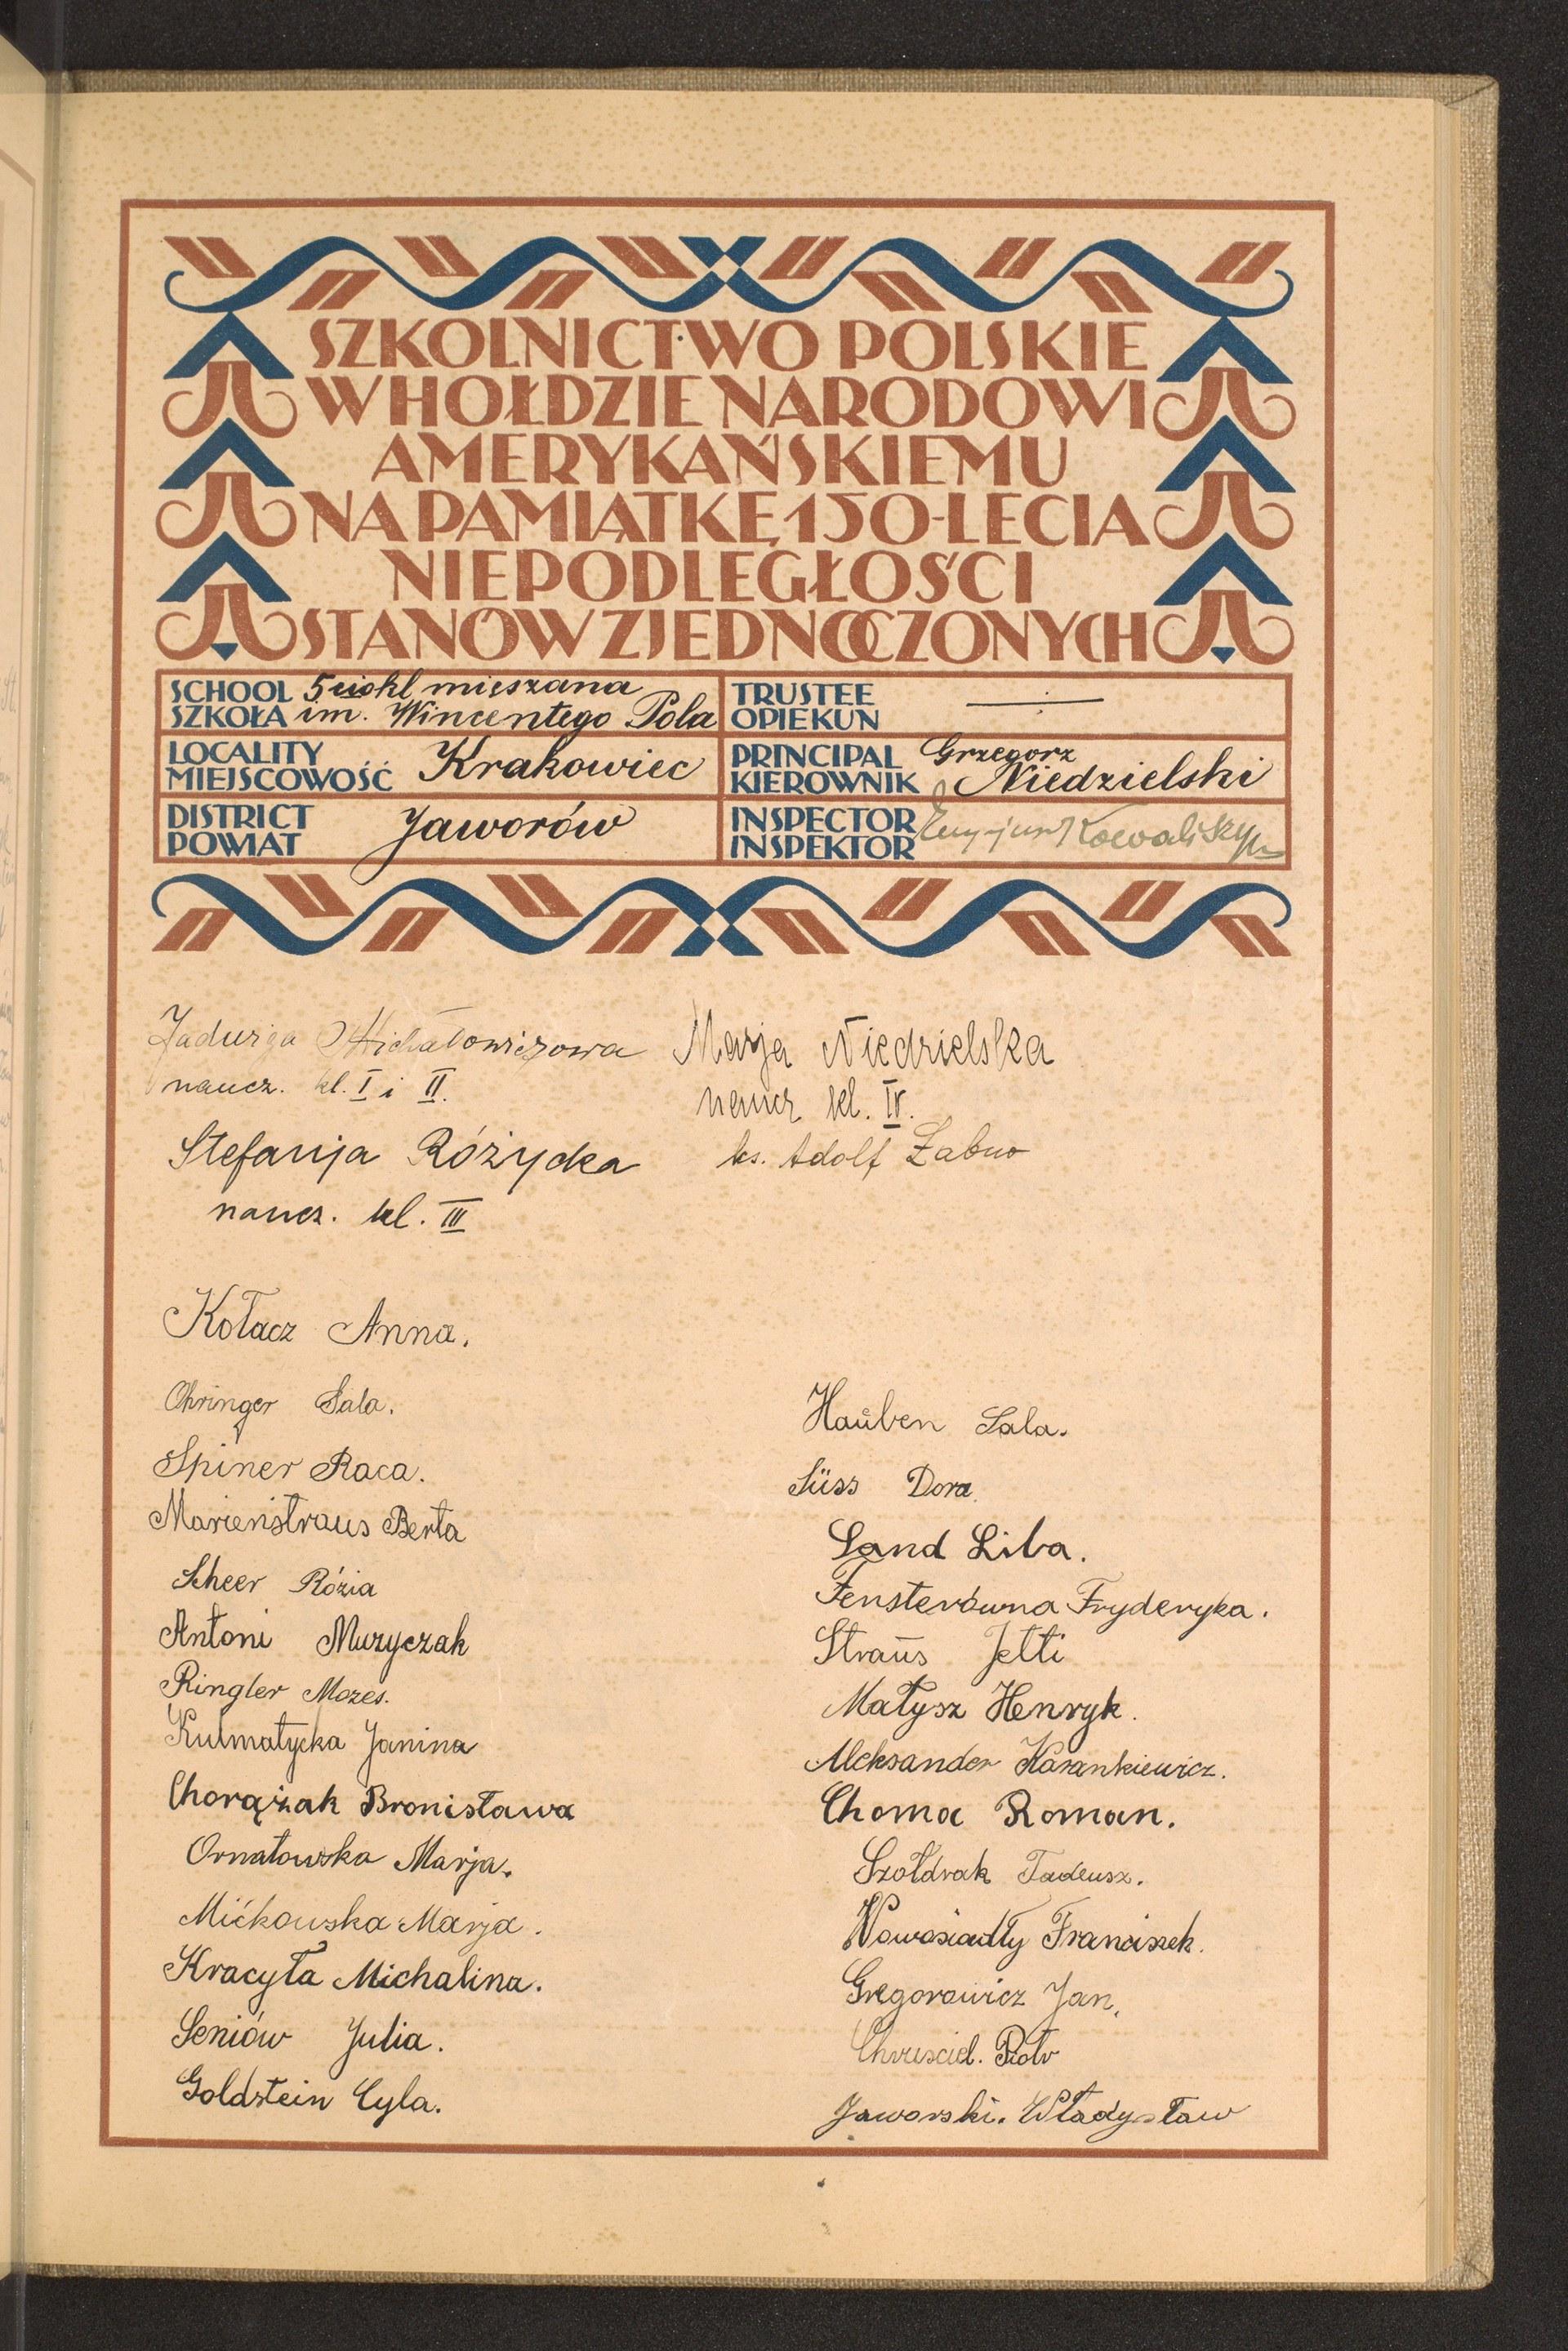 SZKOLNICTWO POLSKIE
W HOŁDZIE NARODOWI
AMERYKAŃSKIEMU
NA PAMIĄTKĘ 150-LECIA
NIEPODLEGŁOŚCI
STANÓW ZJEDNOCZONYCH
SCHOOL 5ciokl mieszana
SZKOŁA im. Wincentego Pola
TRUSTEE
OPIEKUN
LOCALITY
MIEJSCOWOŚĆ Krakowiec
PRINCIPAL Grzegorz
KIEROWNIK Niedzielski
DISTRICT
POWIAT Jaworów
INSPECTOR
INSPEKTOR Kowaliszyn
Jadwiga Michałowiczowa
naucz. kl. I i II.
Marja Niedzielska
naucz kl. IV.
Stefanja Różycka
naucz. kl. III
ks. Adolf Żabno
Kołacz Anna.
Ohringer Sala.
Spiner Raca.
Marienstraus Berta
Scheer Rózia
Antoni Muzyczak
Ringler Mozes.
Kulmatycka Janina
Chorążak Bronisława
Ornatowska Marja.
Mićkowska Marja.
Kracyła Michalina.
Seniów Julia.
Goldstein Cyla.
Haŭben Sala.
Süss Dora.
Sand Liba.
Fensterówna Fryderyka.
Straŭs Jetti
Małysz Henryk.
Aleksander Kozankiewicz.
Choma Roman.
Szołdrak Tadeusz.
Nowosiadły Franciszek.
Gregorowicz Jan.
Chruściel. Piotr
Jaworski. Władysław